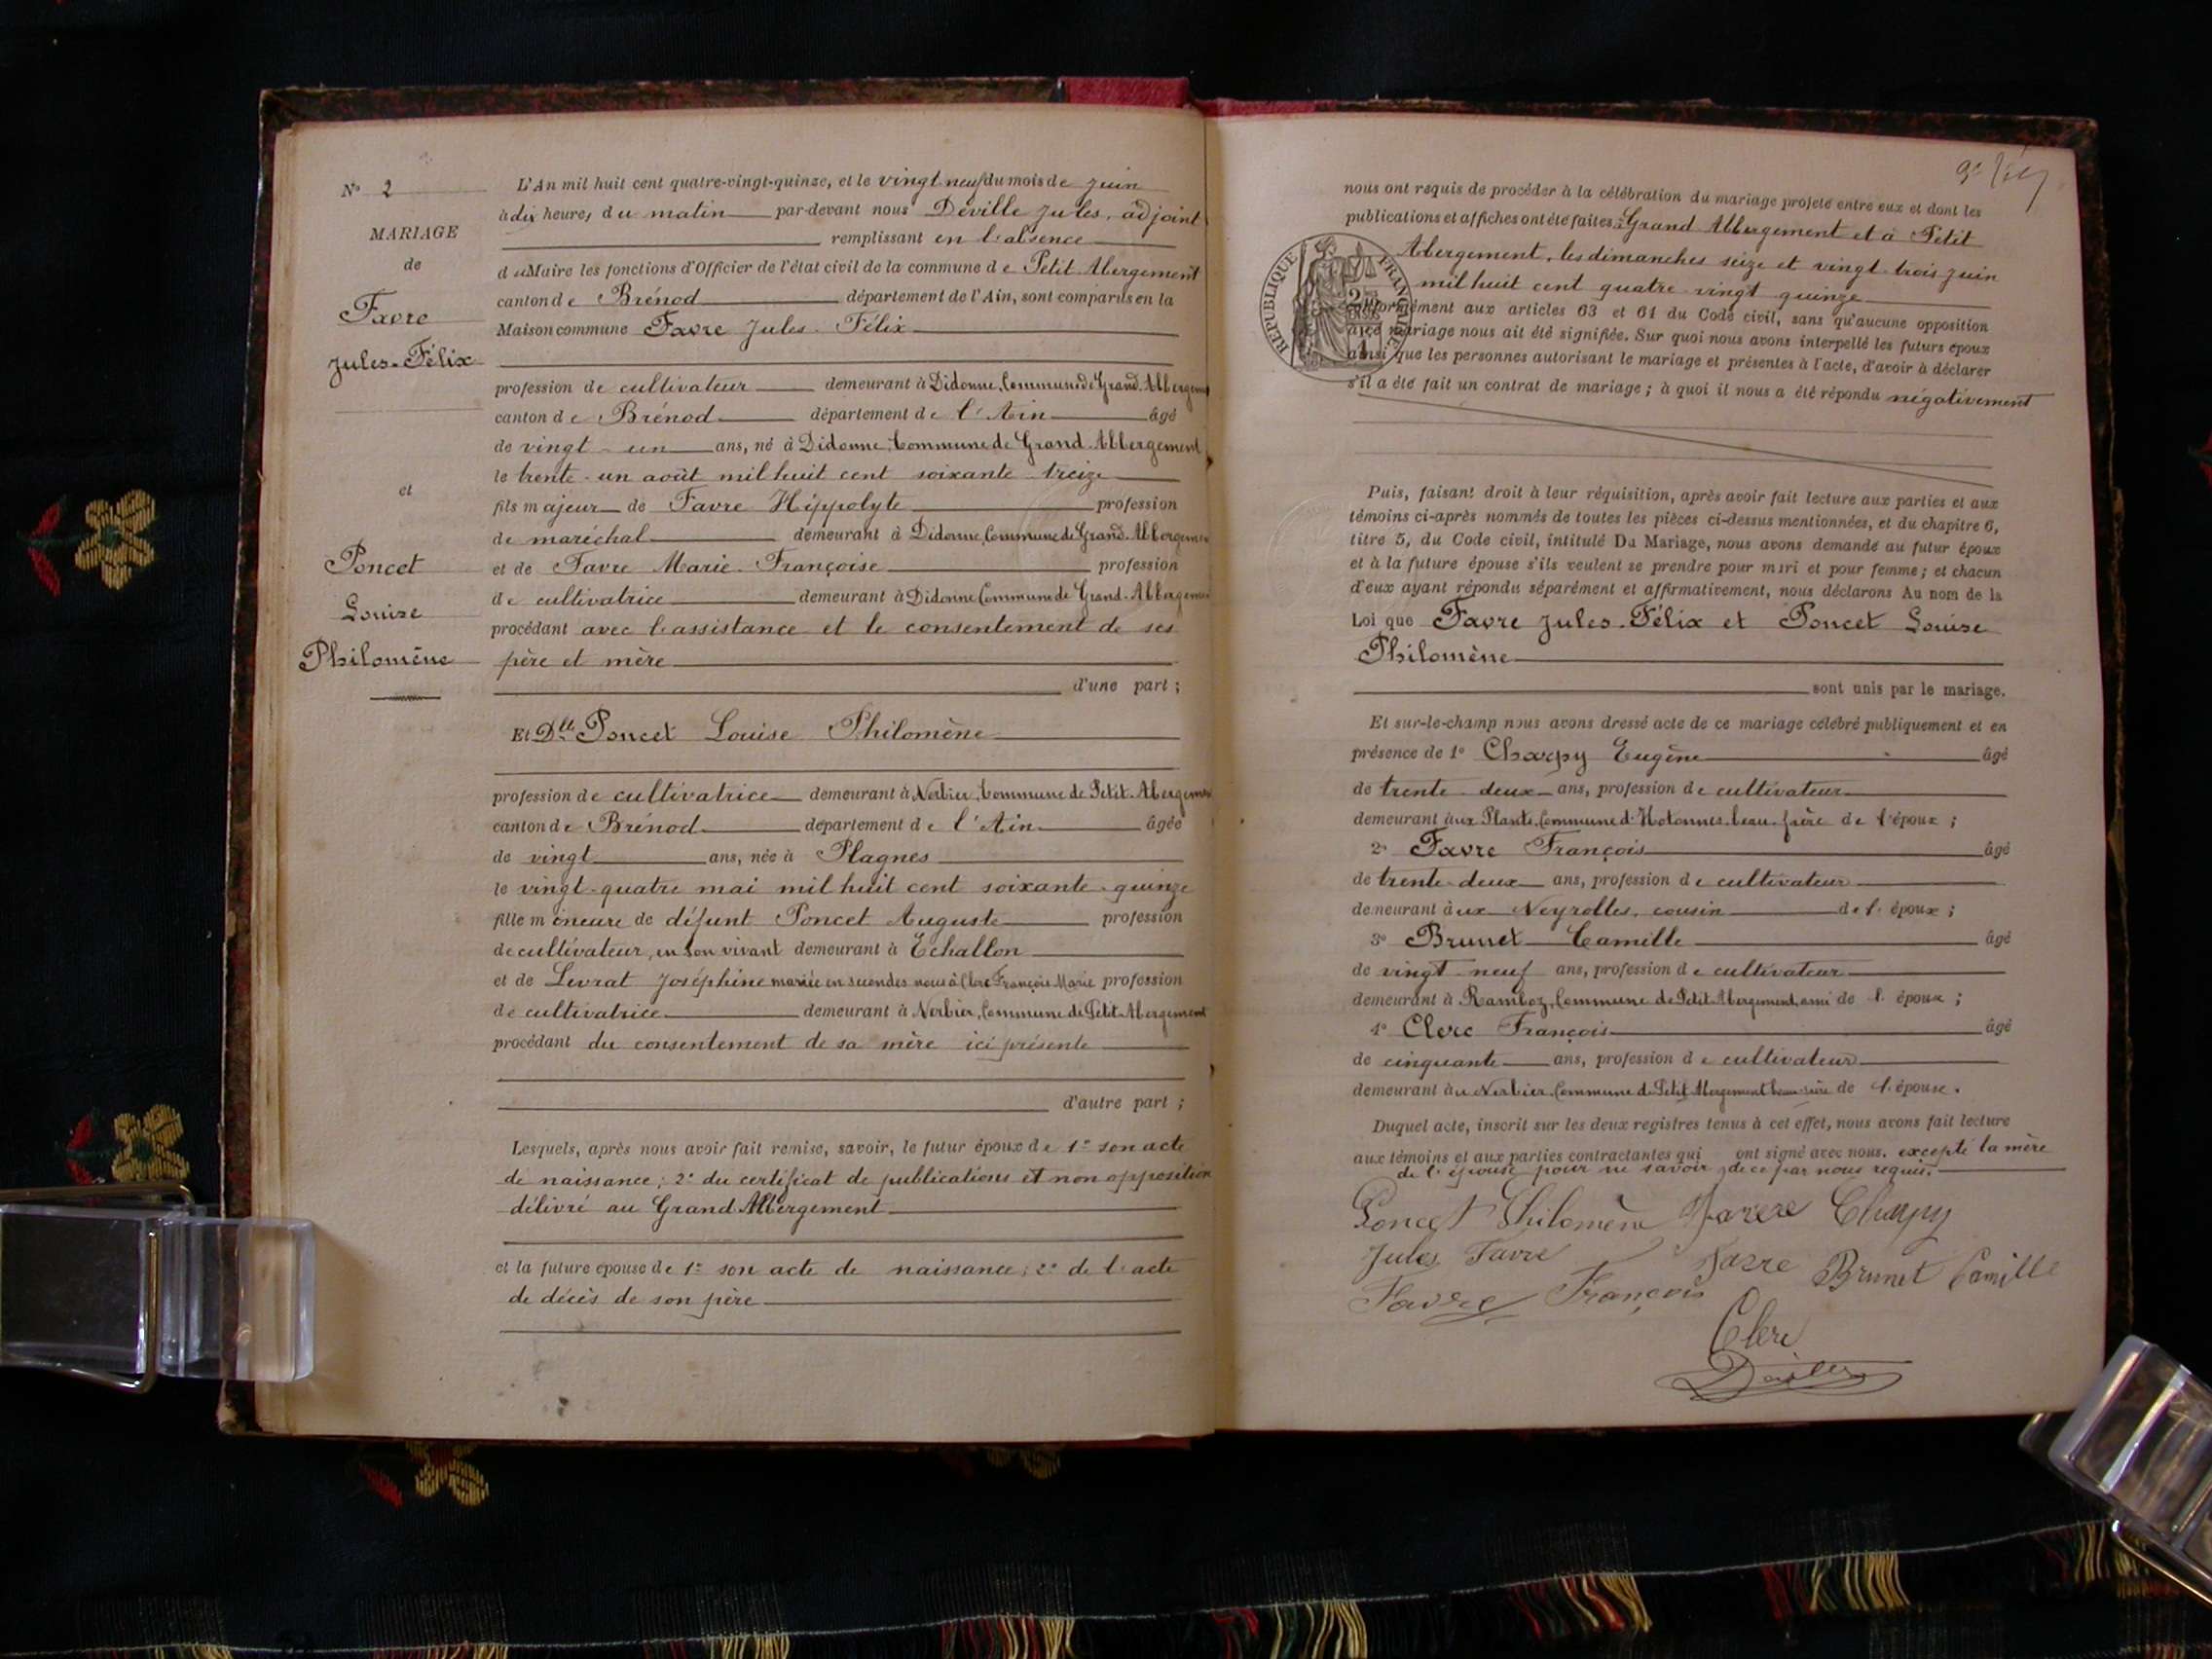 N° 2
MARIAGE
de
Favre
Jules-Félix
et
Poncet
Louise
Philomène
L'An mil huit cent quatre-vingt-quinze, et le vingt neuf du mois de juin
à dix heures du matin par-devant nous Déville Jules, adjoint
remplissant en l'absence
du Maire les fonctions d'Officier de l'état civil de la commune de Petit-Abergement
canton de Brénod département de l'Ain, sont comparus en la
Maison commune Favre Jules-Félix
profession de cultivateur demeurant à Didonne, Commune de Grand-Abbergement
canton de Brénod département de l'Ain âgé
de vingt-un ans, né à Didonne, Commune de Grand-Abbergement
le trente-un août mil huit cent soixante-treize
fils majeur de Favre Hippolyte profession
de maréchal demeurant à Didonne, Commune de Grand-Abbergement
et de Favre Marie-Françoise profession
de cultivatrice demeurant à Didonne Commune de Grand-Abbergement
procédant avec l'assistance et le consentement de ses
père et mère
d'une part ;
Et Dlle Poncet Louise Philomène
profession de cultivatrice demeurant à Nerbier, Commune de Petit-Abergement
canton de Brénod département de l'Ain âgée
de vingt ans, née à Plagnes
le vingt-quatre mai mil huit cent soixante-quinze
fille mineure de défunt Poncet Auguste profession
de cultivateur, en son vivant demeurant à Echallon
et de Levrat Joséphine mariée en secondes noces à Clerc François Marie profession
de cultivatrice demeurant à Nerbier, Commune de Petit-Abergement
procédant du consentement de sa mère ici présente
d'autre part ;
Lesquels, après nous avoir fait remise, savoir, le futur époux de 1° son acte
de naissance ; 2° du certificat de publications et non opposition
délivré au Grand Abbergement
et la future épouse de 1° son acte de naissance ; 2° de l'acte
de décès de son père
nous ont requis de procéder à la célébration du mariage projeté entre eux et dont les
publications et affiches ont été faites à Grand Abbergement et à Petit
Abergement, les dimanches seize et vingt-trois juin
mil huit cent quatre-vingt quinze
conformément aux articles 63 et 61 du Code civil, sans qu'aucune opposition
à ce mariage nous ait été signifiée. Sur quoi nous avons interpellé les futurs époux
ainsi que les personnes autorisant le mariage et présentes à l'acte, d'avoir à déclarer
s'il a été fait un contrat de mariage ; à quoi il nous a été répondu négativement
RÉPUBLIQUE FRANÇAISE
Puis, faisant droit à leur réquisition, après avoir fait lecture aux parties et aux
témoins ci-après nommés de toutes les pièces ci-dessus mentionnées, et du chapitre 6,
titre 5, du Code civil, intitulé Du Mariage, nous avons demandé au futur époux
et à la future épouse s'ils veulent se prendre pour mari et pour femme ; et chacun
d'eux ayant répondu séparément et affirmativement, nous déclarons Au nom de la
Loi que Favre Jules-Félix et Poncet Louise
Philomène
sont unis par le mariage.
Et sur-le-champ nous avons dressé acte de ce mariage célébré publiquement et en
présence de 1° Charpy Eugène âgé
de trente-deux ans, profession de cultivateur
demeurant aux Plants, Commune d'Hotonnes, beau-frère de l'époux ;
2° Favre François âgé
de trente-deux ans, profession de cultivateur
demeurant aux Neyrolles, cousin de l'époux ;
3° Brunet Camille âgé
de vingt-neuf ans, profession de cultivateur
demeurant à Ramboz, Commune de Petit-Abergement, ami de l'époux ;
4° Clerc François âgé
de cinquante ans, profession de cultivateur
demeurant au Nerbier, Commune de Petit Abergement beau-père de l'épouse.
Duquel acte, inscrit sur les deux registres tenus à cet effet, nous avons fait lecture
aux témoins et aux parties contractantes qui ont signé avec nous. excepté la mère
de l'épouse pour ne savoir, de ce par nous requis.
Poncet Philomène Favre Charpy
Jules Favre Favre Brunet Camille
Favre François
Clerc
Déville